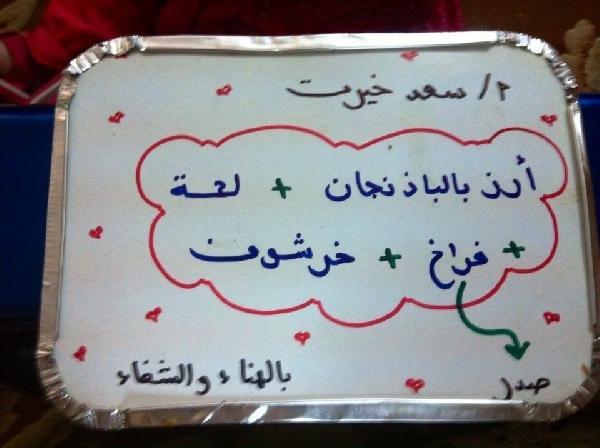 م/ سعد خيرت
أرز بالباذنجان + لحمة
+ فراخ + خرشوف
صدر
بالهناء والشفاء